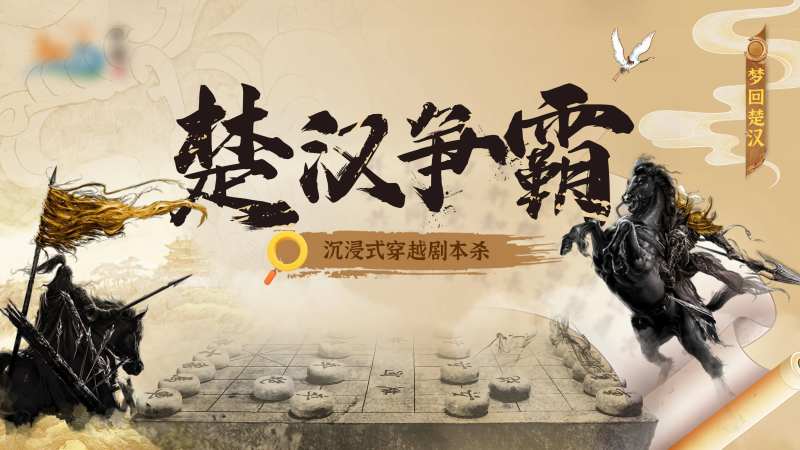 楚汉争霸
沉浸式穿越剧本杀
梦回楚汉